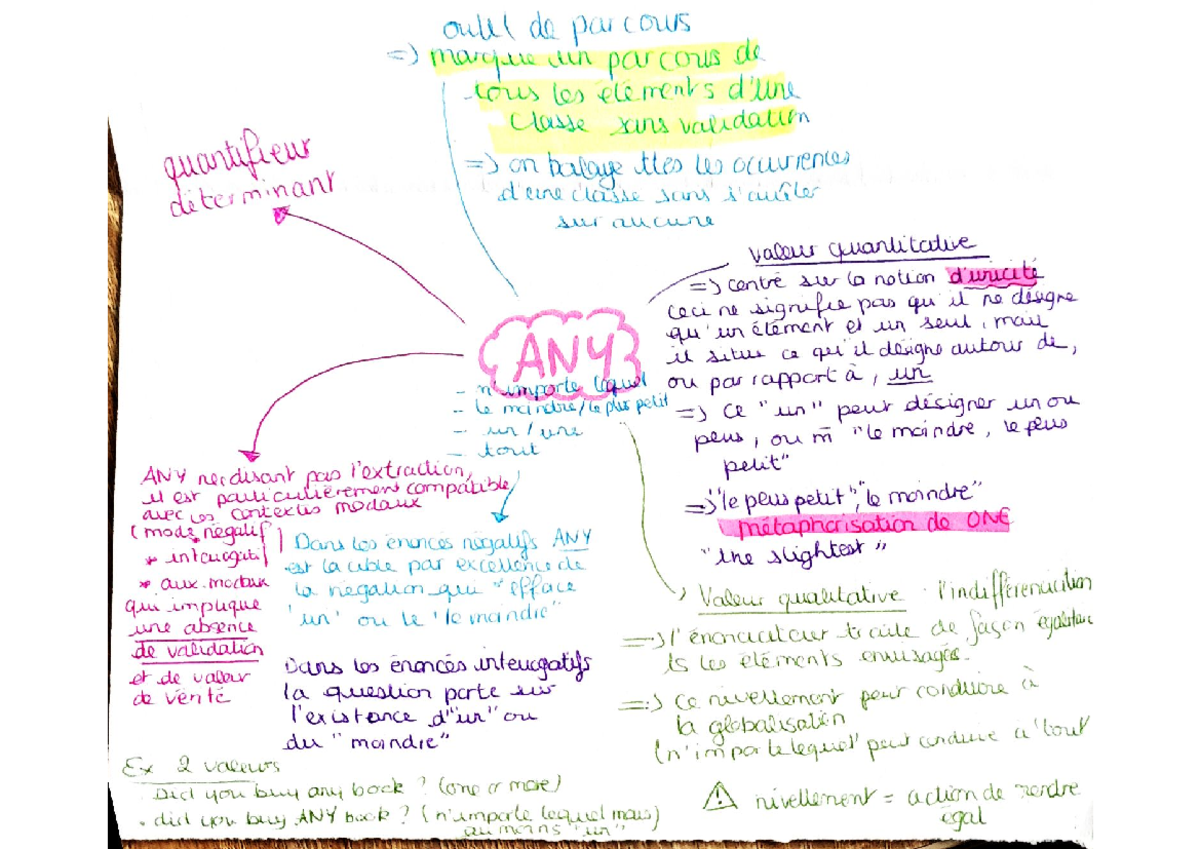 outil de parcours
=> marque un parcours de
tous les éléments d'une
classe sans validation
=> on balaye ttes les occurrences
d'une classe sans s'arrêter
sur aucune
quantifieur
déterminant
valeur quantitative
=> centré sur la notion d'unicité
ceci ne signifie pas qu'il ne désigne
qu'un élément et un seul, mais
il situe ce qu'il désigne autour de,
ou par rapport à, un
=> ce "un" peut désigner un ou
plus, ou m̄ "le moindre, le plus
petit"
=> "le plus petit", "le moindre"
métaphorisation de ONE
"the slightest"
ANY
- n'importe lequel
- le moindre/le plus petit
- un/une
- tout
ANY ne disant pas l'extraction,
il est particulièrement compatible
avec les contextes modaux
(mode négatif
* interrogatif
* aux. modaux
qui implique
une absence
de validation
et de valeur
de vérité
Dans les énoncés négatifs ANY
est la cible par excellence de
la négation qui "efface
"un" ou le "le moindre"
Dans les énoncés interrogatifs
la question porte sur
l'existence d'"un" ou
du "moindre"
Valeur qualitative : l'indifférenciation
=> l'énonciateur traite de façon égalitaire
ts les éléments envisagés.
=> ce nivellement peut conduire à
la globalisation
(n'importe lequel peut conduire à "tout
⚠ nivellement = action de rendre
égal
Ex 2 valeurs
. Did you buy any book ? (one or more)
. did you buy ANY book ? (n'importe lequel mais)
au moins "un"